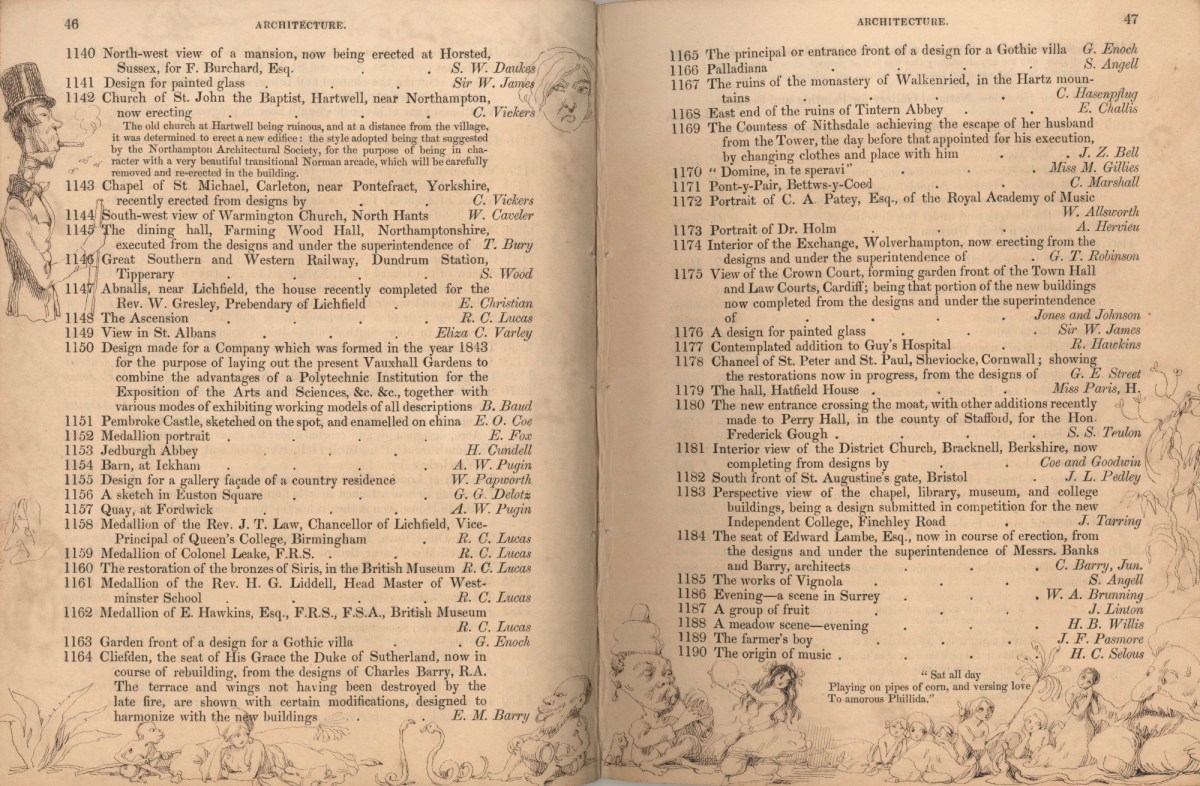 46
ARCHITECTURE.
1140 North-west view of a mansion, now being erected at Horsted,
Sussex, for F. Burchard, Esq. . . S. W. Daukes
1141 Design for painted glass . . . Sir W. James
1142 Church of St. John the Baptist, Hartwell, near Northampton,
now erecting . . . . C. Vickers
The old church at Hartwell being ruinous, and at a distance from the village,
it was determined to erect a new edifice: the style adopted being that suggested
by the Northampton Architectural Society, for the purpose of being in cha-
racter with a very beautiful transitional Norman arcade, which will be carefully
removed and re-erected in the building.
1143 Chapel of St. Michael, Carleton, near Pontefract, Yorkshire,
recently erected from designs by . . C. Vickers
1144 South-west view of Warmington Church, North Hants W. Caveler
1145 The dining hall, Farming Wood Hall, Northamptonshire,
executed from the designs and under the superintendence of T. Bury
1146 Great Southern and Western Railway, Dundrum Station,
Tipperary . . . . S. Wood
1147 Abnalls, near Lichfield, the house recently completed for the
Rev. W. Gresley, Prebendary of Lichfield . E. Christian
1148 The Ascension . . . . R. C. Lucas
1149 View in St. Albans . . . Eliza C. Varley
1150 Design made for a Company which was formed in the year 1843
for the purpose of laying out the present Vauxhall Gardens to
combine the advantages of a Polytechnic Institution for the
Exposition of the Arts and Sciences, &c. &c., together with
various modes of exhibiting working models of all descriptions B. Baud
1151 Pembroke Castle, sketched on the spot, and enamelled on china E. O. Coe
1152 Medallion portrait . . . . E. Fox
1153 Jedburgh Abbey . . . . H. Cundell
1154 Barn, at Ickham . . . . A. W. Pugin
1155 Design for a gallery façade of a country residence W. Papworth
1156 A sketch in Euston Square . . . G. G. Delotz
1157 Quay, at Fordwick . . . . A. W. Pugin
1158 Medallion of the Rev. J. T. Law, Chancellor of Lichfield, Vice-
Principal of Queen's College, Birmingham . R. C. Lucas
1159 Medallion of Colonel Leake, F.R.S. . . R. C. Lucas
1160 The restoration of the bronzes of Siris, in the British Museum R. C. Lucas
1161 Medallion of the Rev. H. G. Liddell, Head Master of West-
minster School . . . . R. C. Lucas
1162 Medallion of E. Hawkins, Esq., F.R.S., F.S.A., British Museum
R. C. Lucas
1163 Garden front of a design for a Gothic villa . . G. Enoch
1164 Cliefden, the seat of His Grace the Duke of Sutherland, now in
course of rebuilding, from the designs of Charles Barry, R.A.
The terrace and wings not having been destroyed by the
late fire, are shown with certain modifications, designed to
harmonize with the new buildings . . E. M. Barry
ARCHITECTURE.
47
1165 The principal or entrance front of a design for a Gothic villa G. Enoch
1166 Palladiana . . . . S. Angell
1167 The ruins of the monastery of Walkenried, in the Hartz moun-
tains . . . . C. Hasenpflug
1168 East end of the ruins of Tintern Abbey . . E. Challis
1169 The Countess of Nithsdale achieving the escape of her husband
from the Tower, the day before that appointed for his execution,
by changing clothes and place with him . . J. Z. Bell
1170 "Domine, in te speravi" . . . Miss M. Gillies
1171 Pont-y-Pair, Bettws-y-Coed . . C. Marshall
1172 Portrait of C. A. Patey, Esq., of the Royal Academy of Music
W. Allsworth
1173 Portrait of Dr. Holm . . . A. Hervieu
1174 Interior of the Exchange, Wolverhampton, now erecting from the
designs and under the superintendence of . G. T. Robinson
1175 View of the Crown Court, forming garden front of the Town Hall
and Law Courts, Cardiff; being that portion of the new buildings
now completed from the designs and under the superintendence
of . . . . Jones and Johnson
1176 A design for painted glass . . . Sir W. James
1177 Contemplated addition to Guy's Hospital . R. Hawkins
1178 Chancel of St. Peter and St. Paul, Sheviocke, Cornwall; showing
the restorations now in progress, from the designs of G. E. Street
1179 The hall, Hatfield House . . . Miss Paris, H.
1180 The new entrance crossing the moat, with other additions recently
made to Perry Hall, in the county of Stafford, for the Hon.
Frederick Gough . . . . S. S. Teulon
1181 Interior view of the District Church, Bracknell, Berkshire, now
completing from designs by . . Coe and Goodwin
1182 South front of St. Augustine's gate, Bristol . J. L. Pedley
1183 Perspective view of the chapel, library, museum, and college
buildings, being a design submitted in competition for the new
Independent College, Finchley Road . J. Tarring
1184 The seat of Edward Lambe, Esq., now in course of erection, from
the designs and under the superintendence of Messrs. Banks
and Barry, architects . . . C. Barry, Jun.
1185 The works of Vignola . . . S. Angell
1186 Evening—a scene in Surrey . . . W. A. Brunning
1187 A group of fruit . . . . J. Linton
1188 A meadow scene—evening . . . H. B. Willis
1189 The farmer's boy . . . . J. F. Pasmore
1190 The origin of music . . . . H. C. Selous
"Sat all day
Playing on pipes of corn, and versing love
To amorous Phillida."